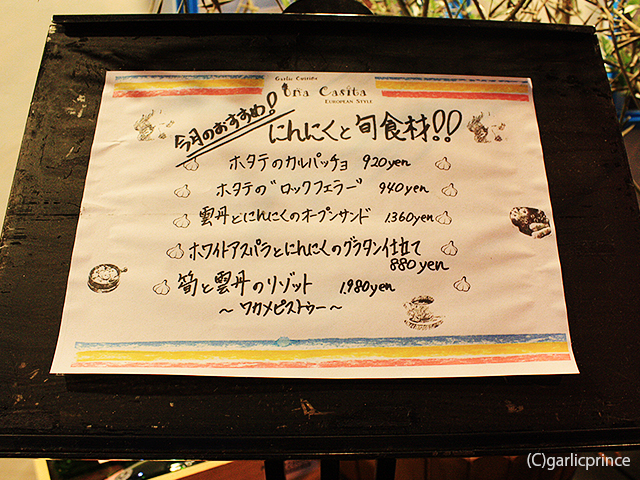 Garlic Cuisine
Una Casita
EUROPEAN STYLE
今月のおすすめ!
にんにくと旬食材!!
ホタテのカルパッチョ 920yen
ホタテの"ロックフェラー" 940yen
雲丹とにんにくのオープンサンド 1360yen
ホワイトアスパラとにんにくのグラタン仕立て
880yen
筍と雲丹のリゾット 1,980yen
〜ワカメピストゥー〜
(C)garlicprince